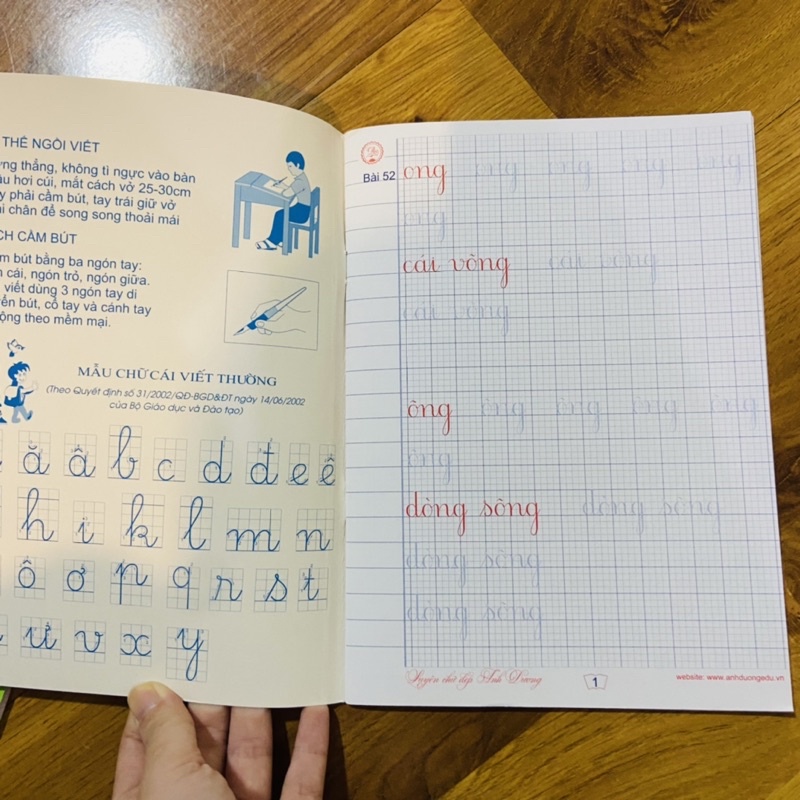 THẾ NGỒI VIẾT
thẳng, không tì ngực vào bàn
hơi cúi, mắt cách vở 25-30cm
phải cầm bút, tay trái giữ vở
chân để song song thoải mái
CẦM BÚT
bút bằng ba ngón tay:
cái, ngón trỏ, ngón giữa.
viết dùng 3 ngón tay di
bút, cổ tay và cánh tay
theo mềm mại.
MẪU CHỮ CÁI VIẾT THƯỜNG
(Theo Quyết định số 31/2002/QĐ-BGD&ĐT ngày 14/06/2002
của Bộ Giáo dục và Đào tạo)
ă â b c d đ e ê
h i k l m n
ô ơ p q r s t
ư v x y
Bài 52 ong ong ong ong ong
ong
cái vòng cái vòng
cái vòng
ông ông ông ông ông
ông
dòng sông dòng sông
dòng sông
dòng sông
Luyện chữ đẹp Ánh Dương 1 website: www.anhduongedu.vn